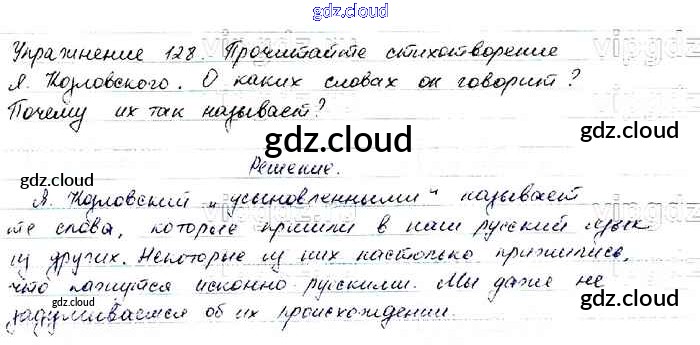 gdz.cloud
Упражнение 128. Прочитайте стихотворение
Я. Козловского. О каких словах он говорит?
Почему их так называет?
gdz.cloud
gdz.cloud
Решение.
gdz.cloud
gdz.cloud
Я. Козловский „усыновленными“ называет
те слова, которые пришли в наш русский язык
из других. Некоторые из них настолько прижились,
что кажутся исконно русскими. Мы даже не
gdz.cloud
gdz.cloud
задумываемся об их происхождении.
gdz.cloud